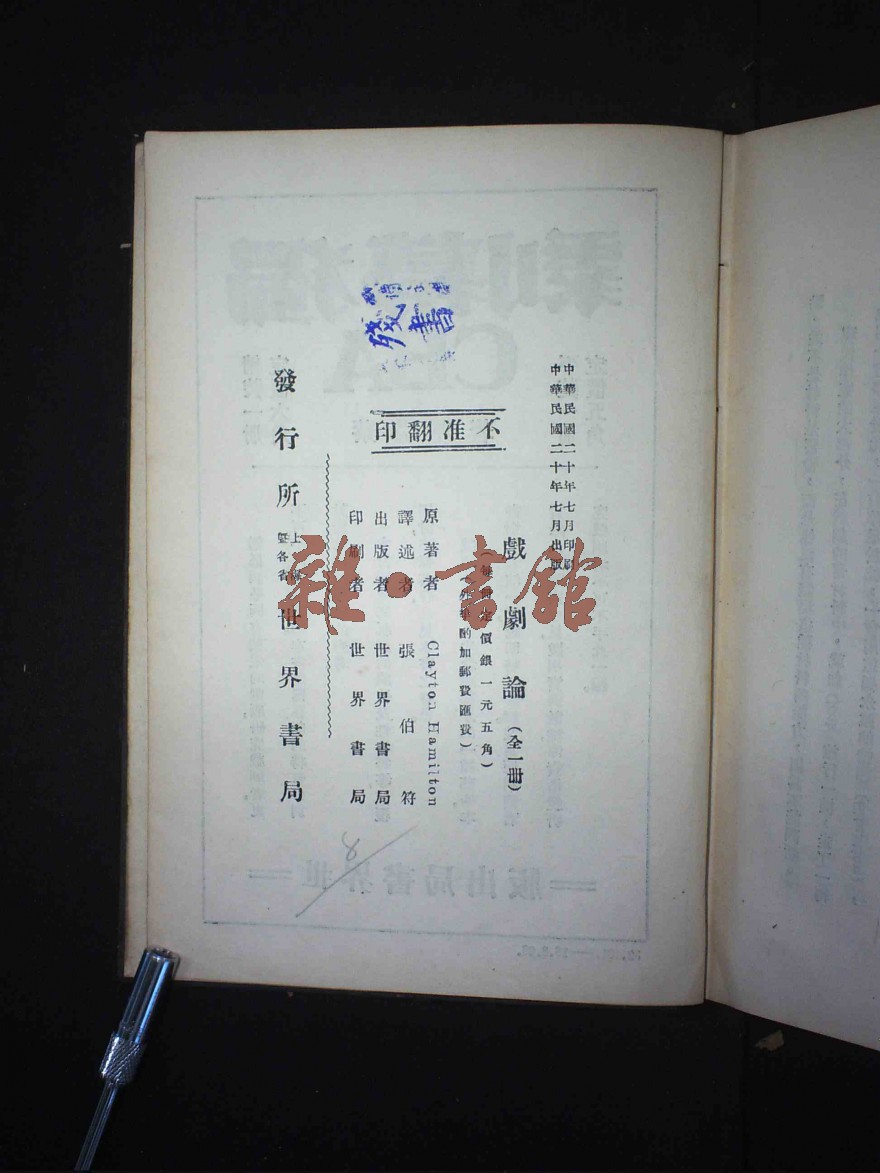 中華民國二十年七月印刷
中華民國二十年七月出版
戲劇論(全一冊)
(每冊定價銀一元五角)
(外埠酌加郵費匯費)
不准翻印
原著者 Clayton Hamilton
譯述者 張伯符
出版者 世界書局
印刷者 世界書局
發行所 上海暨各省 世界書局
發書
雜·書館
8